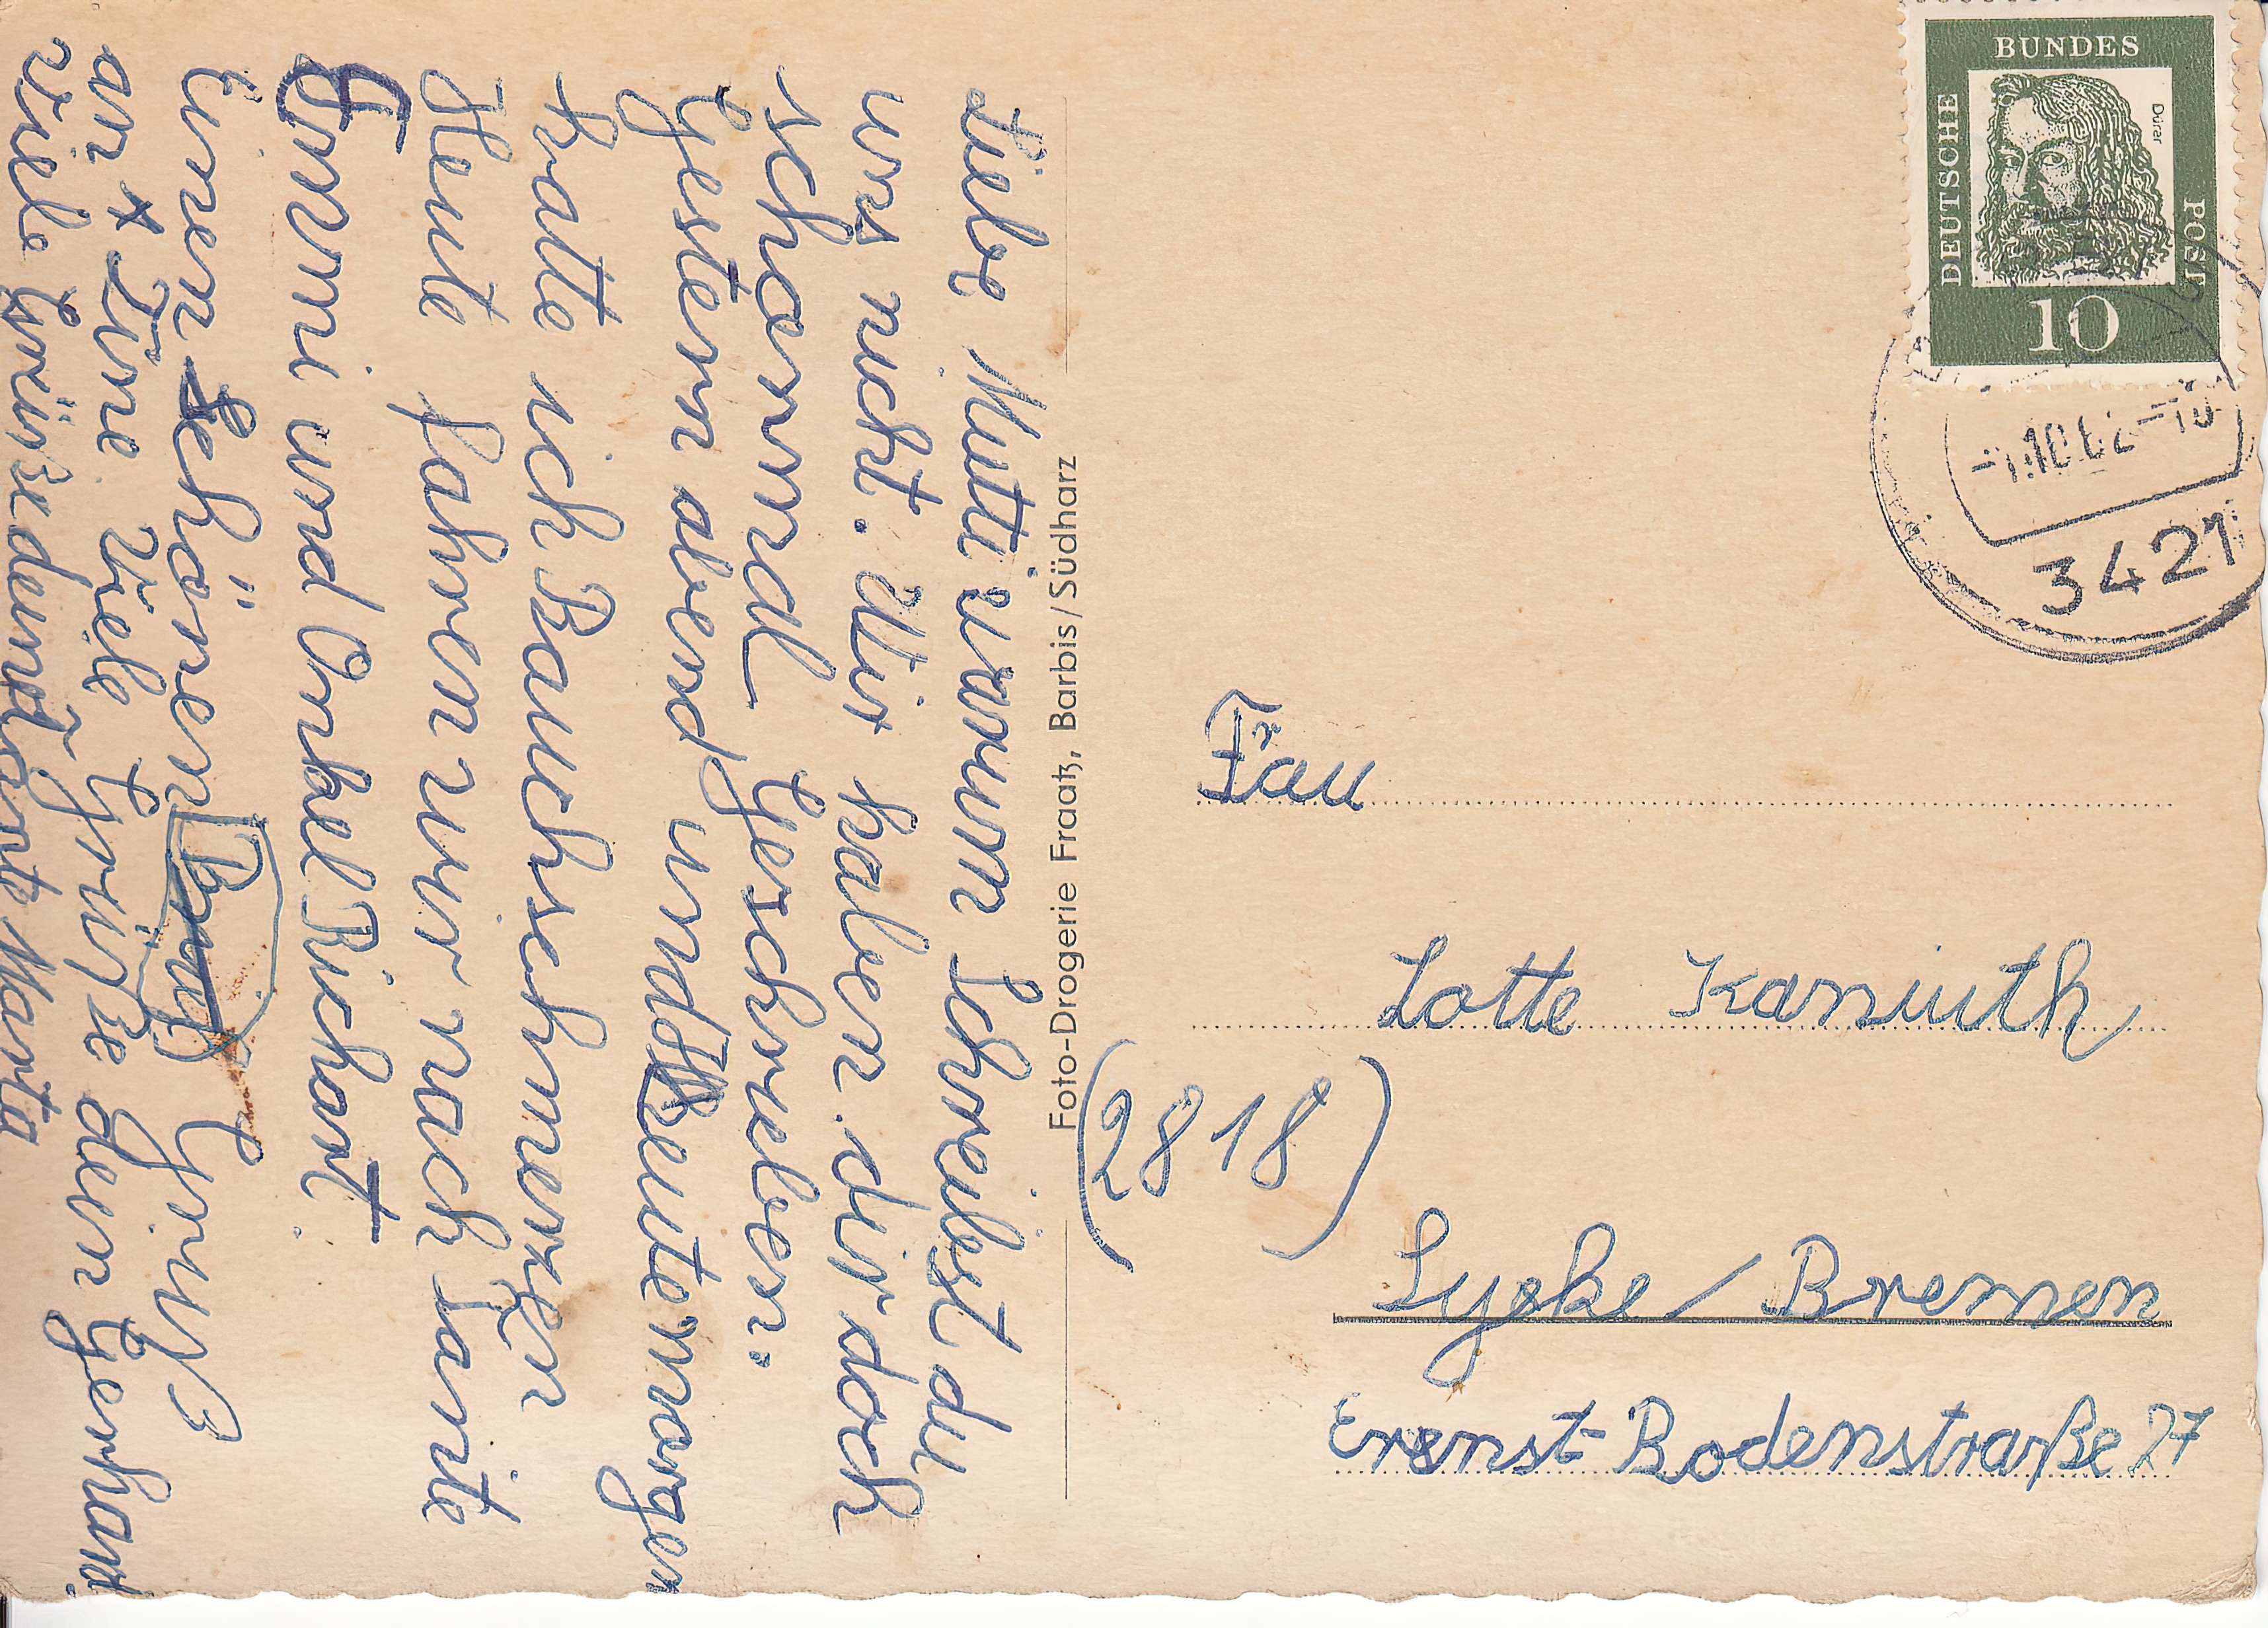 Liebe Mutti warum Schreibst du
uns nicht. Wir haben dir doch
schonmal Geschrieben.
Gestern abend und Heute morgen
hatte ich Bauchschmerzen
Heute fahren wir nach Tante
Emmi und Onkel Richart.
Einen schönen Gruß
an Dine viele Grüße den Gerhard.
viele Grüße dein Tante Marta
Foto-Drogerie Fraatz, Barbis/Südharz
DEUTSCHE BUNDES POST
Dürer
10
3421
Frau
Lotte Kaniuth
(2818)
Syeke / Bremen
Ernst-Bodenstraße 27